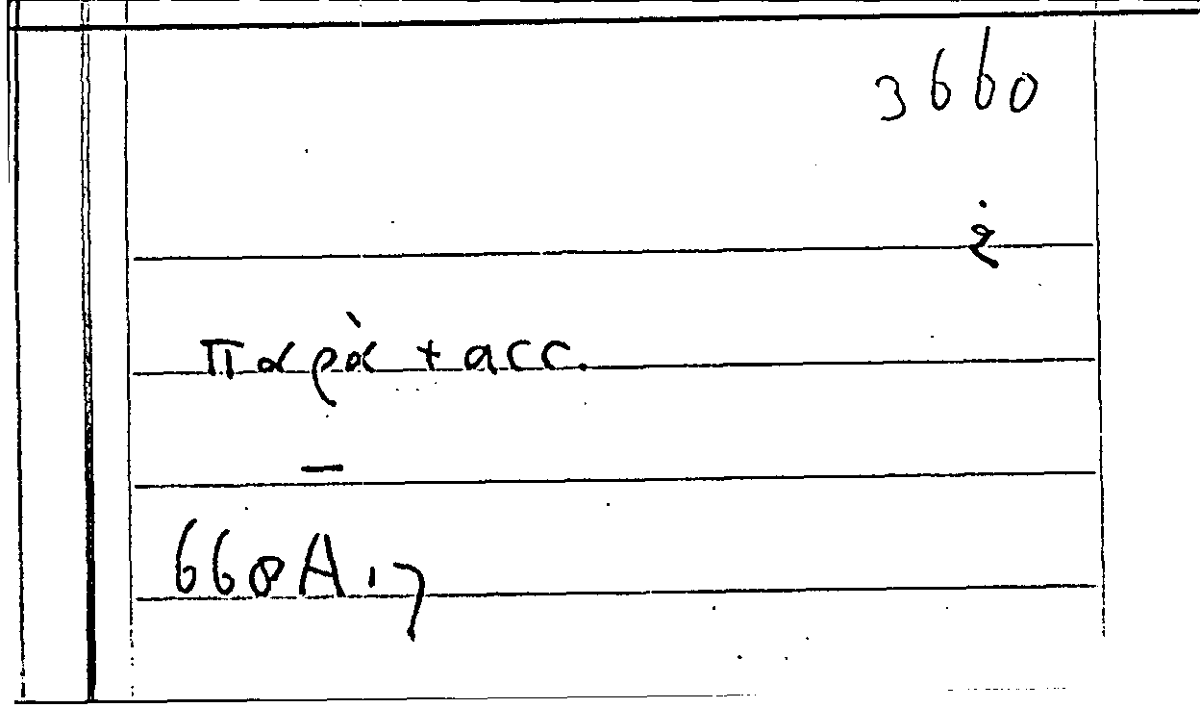 3660
παρὰ + acc.
—
668A17